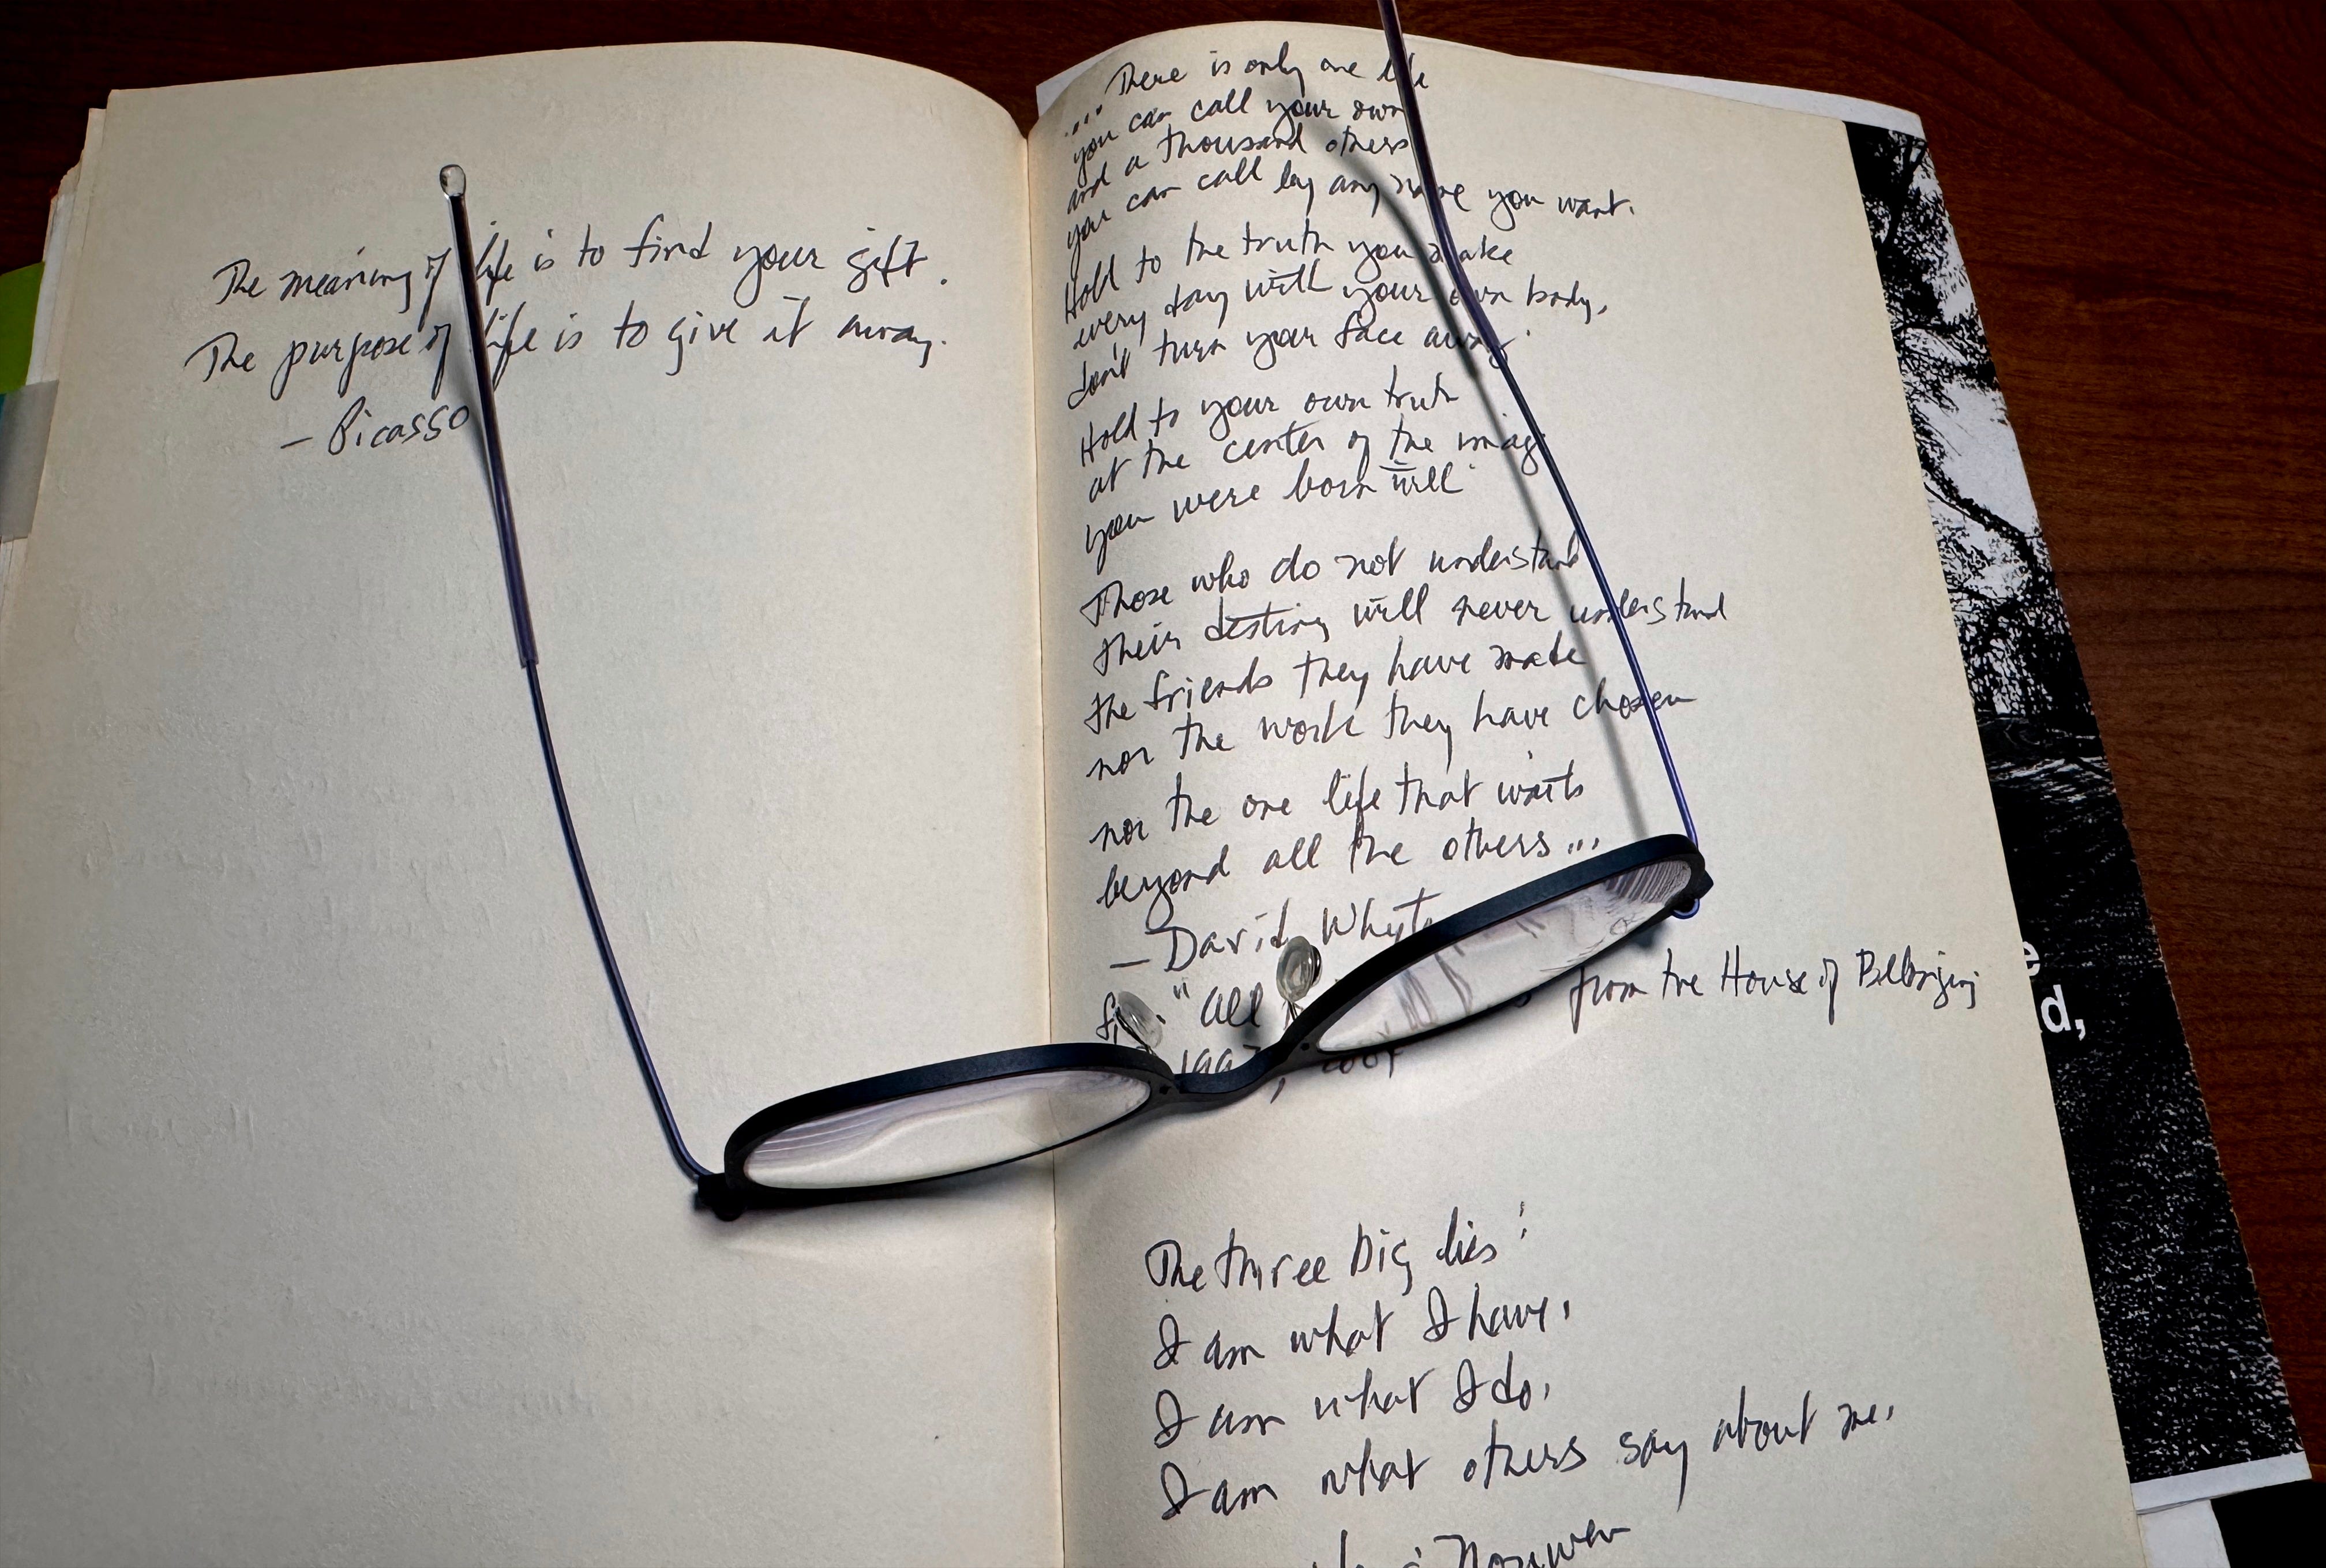 The meaning of life is to find your gift.
The purpose of life is to give it away.
– Picasso
... There is only one life
you can call your own
and a thousand others
you can call by any name you want.
Hold to the truth you make
every day with your own body,
don't turn your face away.
Hold to your own truth
at the center of the image
you were born with
Those who do not understand
their destiny will never understand
the friends they have made
nor the work they have chosen
nor the one life that waits
beyond all the others...
– David Whyte
"All from the House of Belonging
The three big lies:
I am what I have,
I am what I do,
I am what others say about me,
Nouwen
e
d,